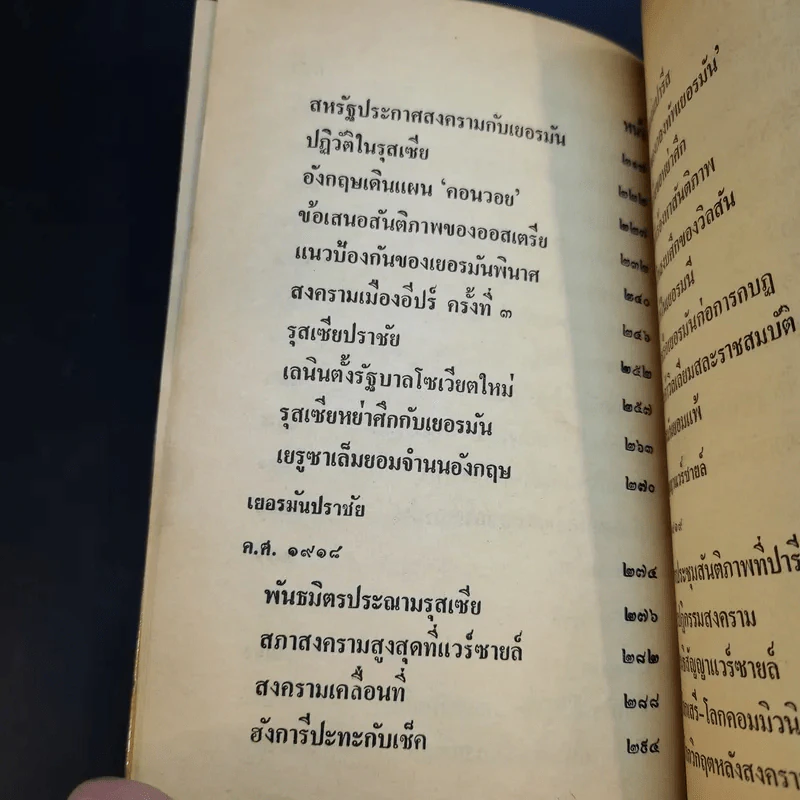 หน้า
สหรัฐประกาศสงครามกับเยอรมัน ๒๑๗
ปฏิวัติในรุสเซีย ๒๒๒
อังกฤษเดินแผน ‘คอนวอย’ ๒๒๗
ข้อเสนอสันติภาพของออสเตรีย ๒๓๒
แนวป้องกันของเยอรมันพินาศ ๒๔๐
สงครามเมืองอีปร์ ครั้งที่ ๓ ๒๔๖
รุสเซียปราชัย ๒๕๒
เลนินตั้งรัฐบาลโซเวียตใหม่ ๒๕๗
รุสเซียหย่าศึกกับเยอรมัน ๒๖๓
เยรูซาเล็มยอมจำนนอังกฤษ ๒๗๐
เยอรมันปราชัย
ค.ศ. ๑๙๑๘
พันธมิตรประณามรุสเซีย ๒๗๔
สภาสงครามสูงสุดที่แวร์ซายล์ ๒๗๖
สงครามเคลื่อนที่ ๒๘๒
ฮังการีปะทะกับเช็ค ๒๘๘
๒๙๔
สันติภาพ
ศึกของวิลสัน
เยอรมันก่อการกบฏ
วิลเลียมสละราชสมบัติ
ยอมแพ้
แวร์ซายล์
ประชุมสันติภาพที่ปารี
ปฏิกรรมสงคราม
สัญญาแวร์ซายล์
เสรี-โลกคอมมิวนิ
วิกฤตหลังสงครา